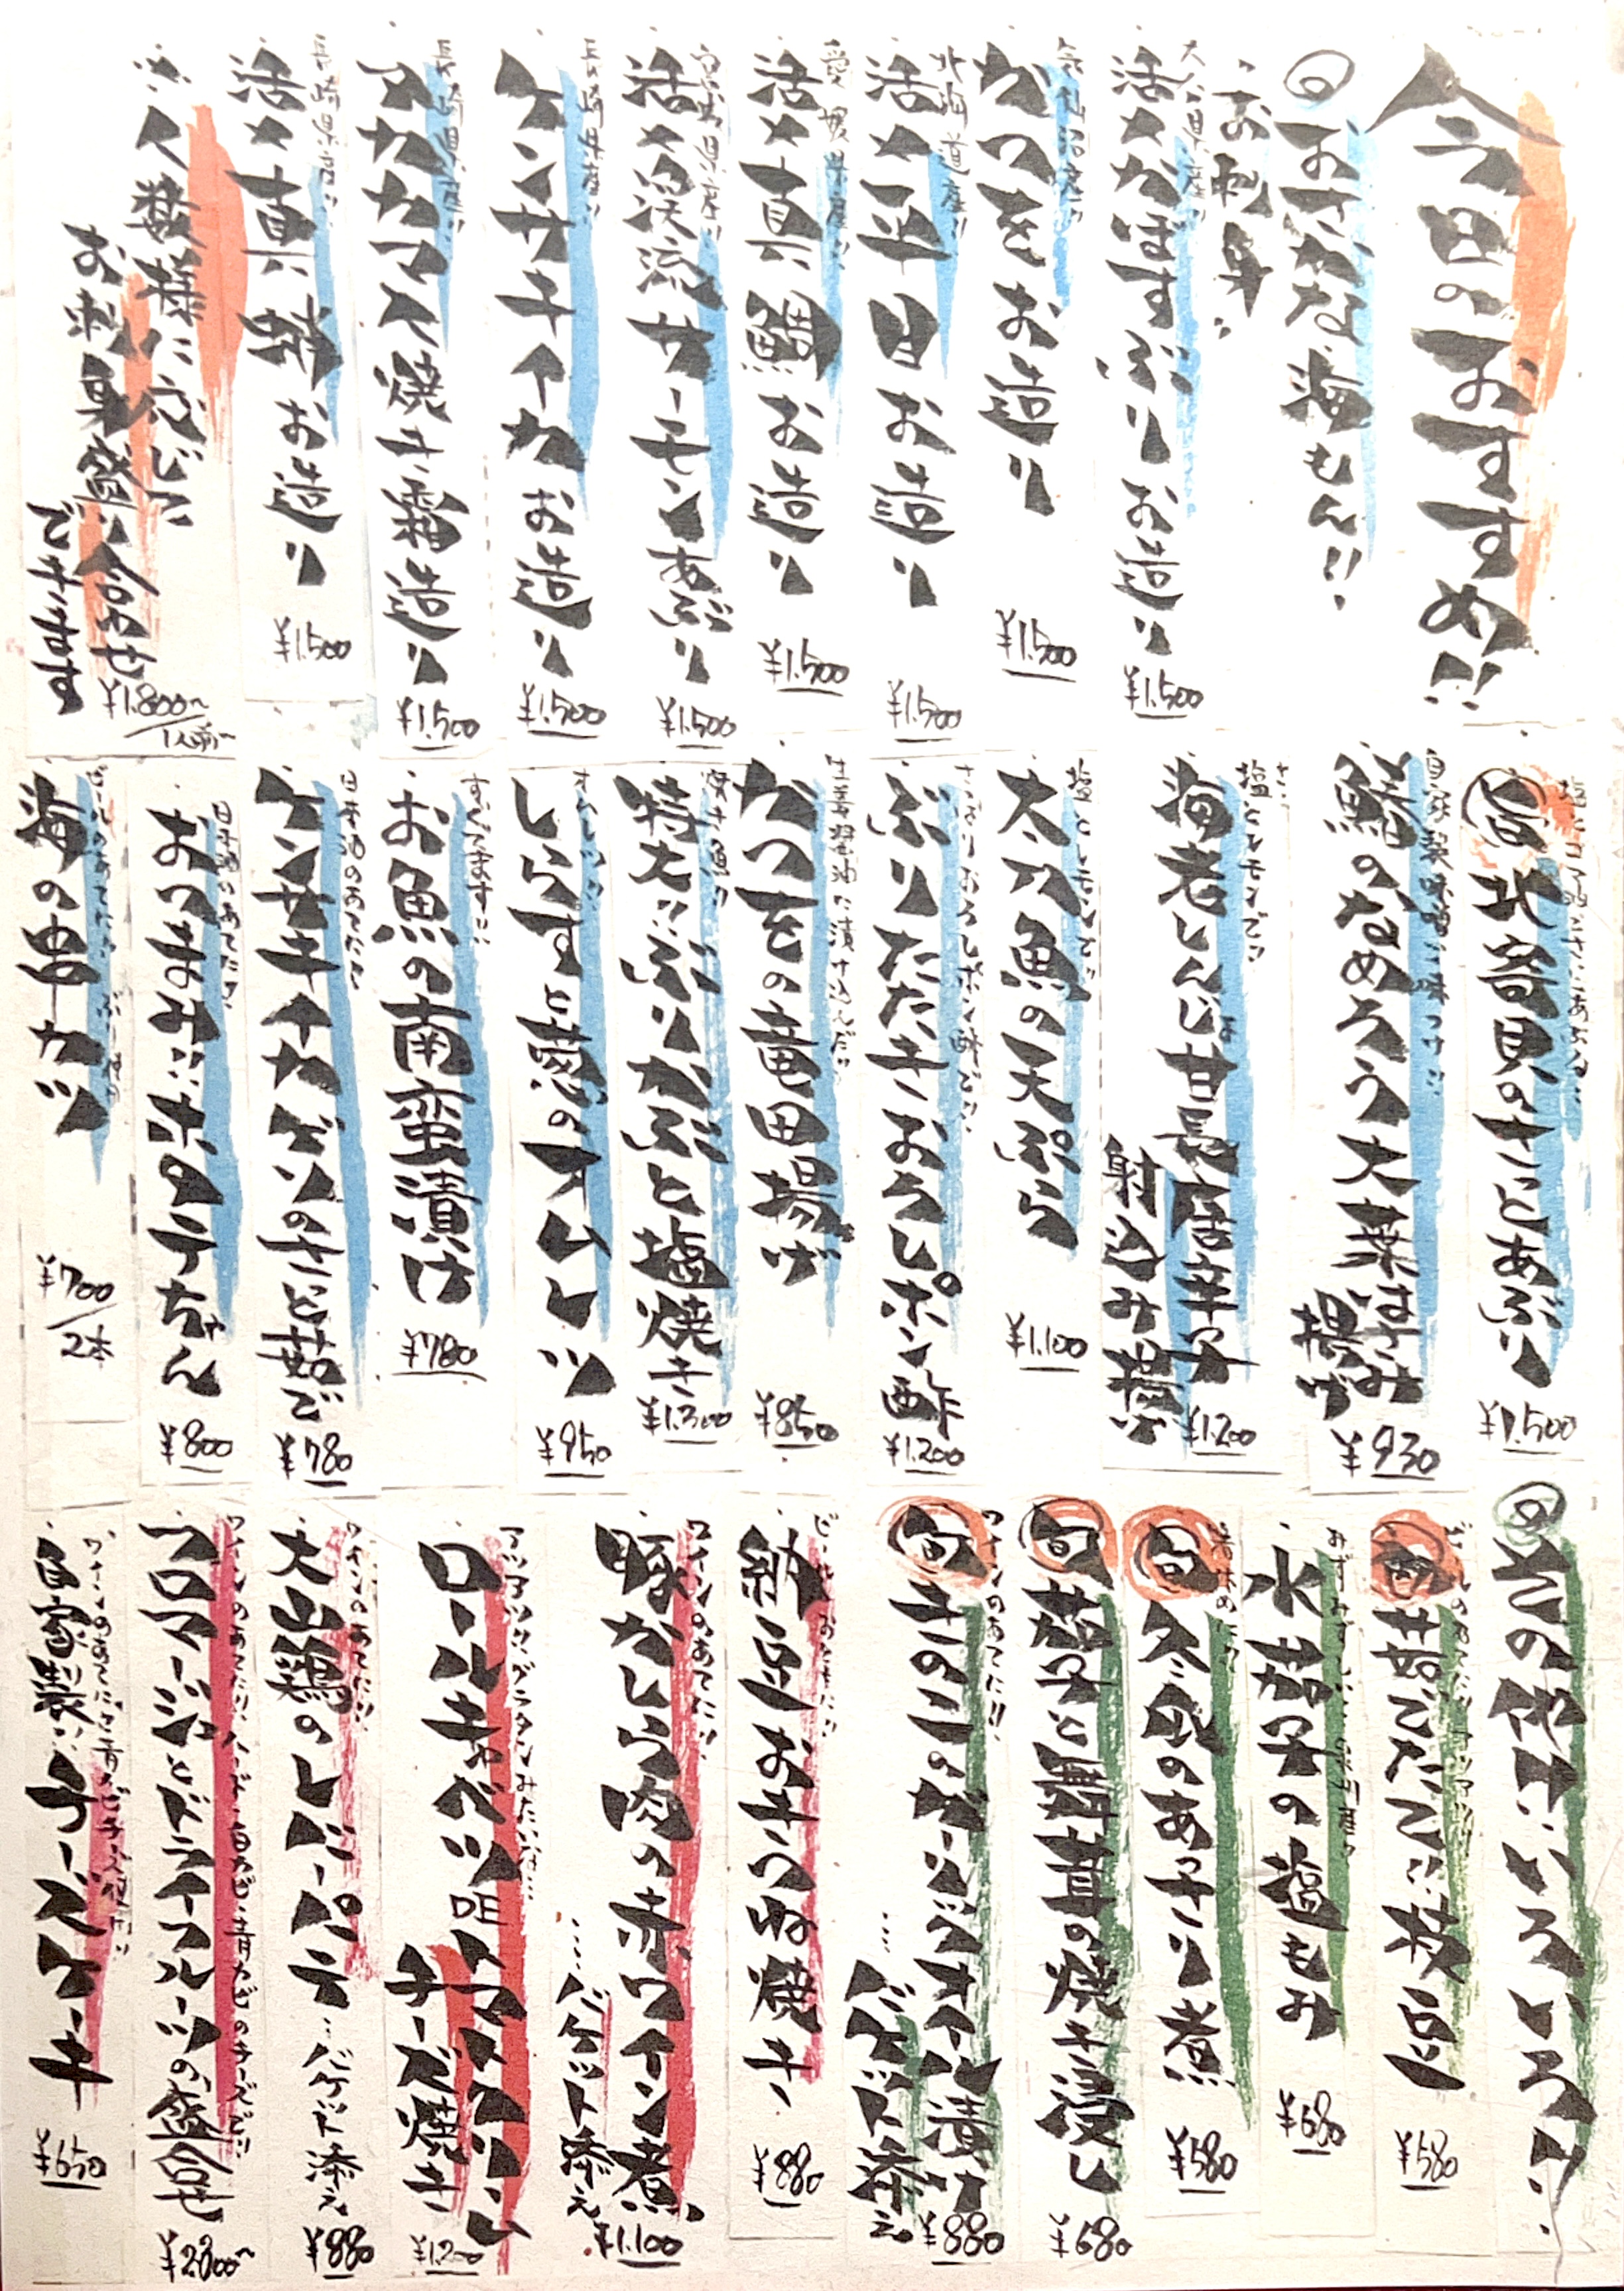 今日のおすすめ!!
おさかな 海もん!!
お刺身
大分県産
活〆かぼすぶりお造り
¥1.500
気仙沼産
かつをお造り
¥1.500
北海道産
活〆平目お造り
¥1.500
愛媛県産
活〆真鯛お造り
¥1.500
宮崎県産
活〆渓流サーモンあぶり
¥1.500
長崎県産
ケンサキイカお造り
¥1.500
長崎県産
アカカマス焼き霜造り
¥1.500
長崎県産
活〆真鯵お造り
¥1.500
人数様に応じて
お刺身盛り合わせ
できます
¥1.800〜
/1人前〜
北寄貝のさっとあぶり
¥1.500
自家製味噌で味つけ!!
鯵のなめろう大葉はさみ
揚げ
¥930
塩とレモンで
海老しんじょ甘長唐辛子
射込み揚げ
¥1.200
塩とレモンで
太刀魚の天ぷら
¥1.100
さっぱりおろしポン酢で
ぶりたたきおろしポン酢
¥1.200
生姜醤油に漬け込んだ
かつをの竜田揚げ
¥850
焼き魚
特大!!ぶりかぶと塩焼き
¥1.300
しらすと葱のオムレツ
¥950
すぐでます!!
お魚の南蛮漬け
¥780
日本酒のあてに
ケンサキイカゲソのさっと茹で
¥780
日本酒のあてに
おつまみ!!ホタテちゃん
¥800
海の串カツ
¥700
/2本
その他!いろいろ!!
旬
茹でたて!!枝豆
¥580
水茄子の塩もみ
¥680
箸休めに
旬
冬瓜のあっさり煮
¥580
旬
茄子と舞茸の焼き浸し
¥680
ワインのあてに!!
旬
きのこのガーリックオイル漬け
…バケット添え
¥880
納豆お好つね焼き
¥880
ワインのあてに!!
豚かしら肉の赤ワイン煮
…バケット添え
¥1.100
アツアツ!!グラタンみたいな
ロールキャベツ
トマトクリーム
チーズ焼き
¥1200
ワインのあてに!!
大山鶏のレバーパテ…バケット添え
¥880
ワインのあてに!!ハード・白カビ・青カビのチーズで!!
フロマージュとドライフルーツの盛合せ
¥2.800〜
ワインのあてに
自家製!!チーズケーキ
¥650